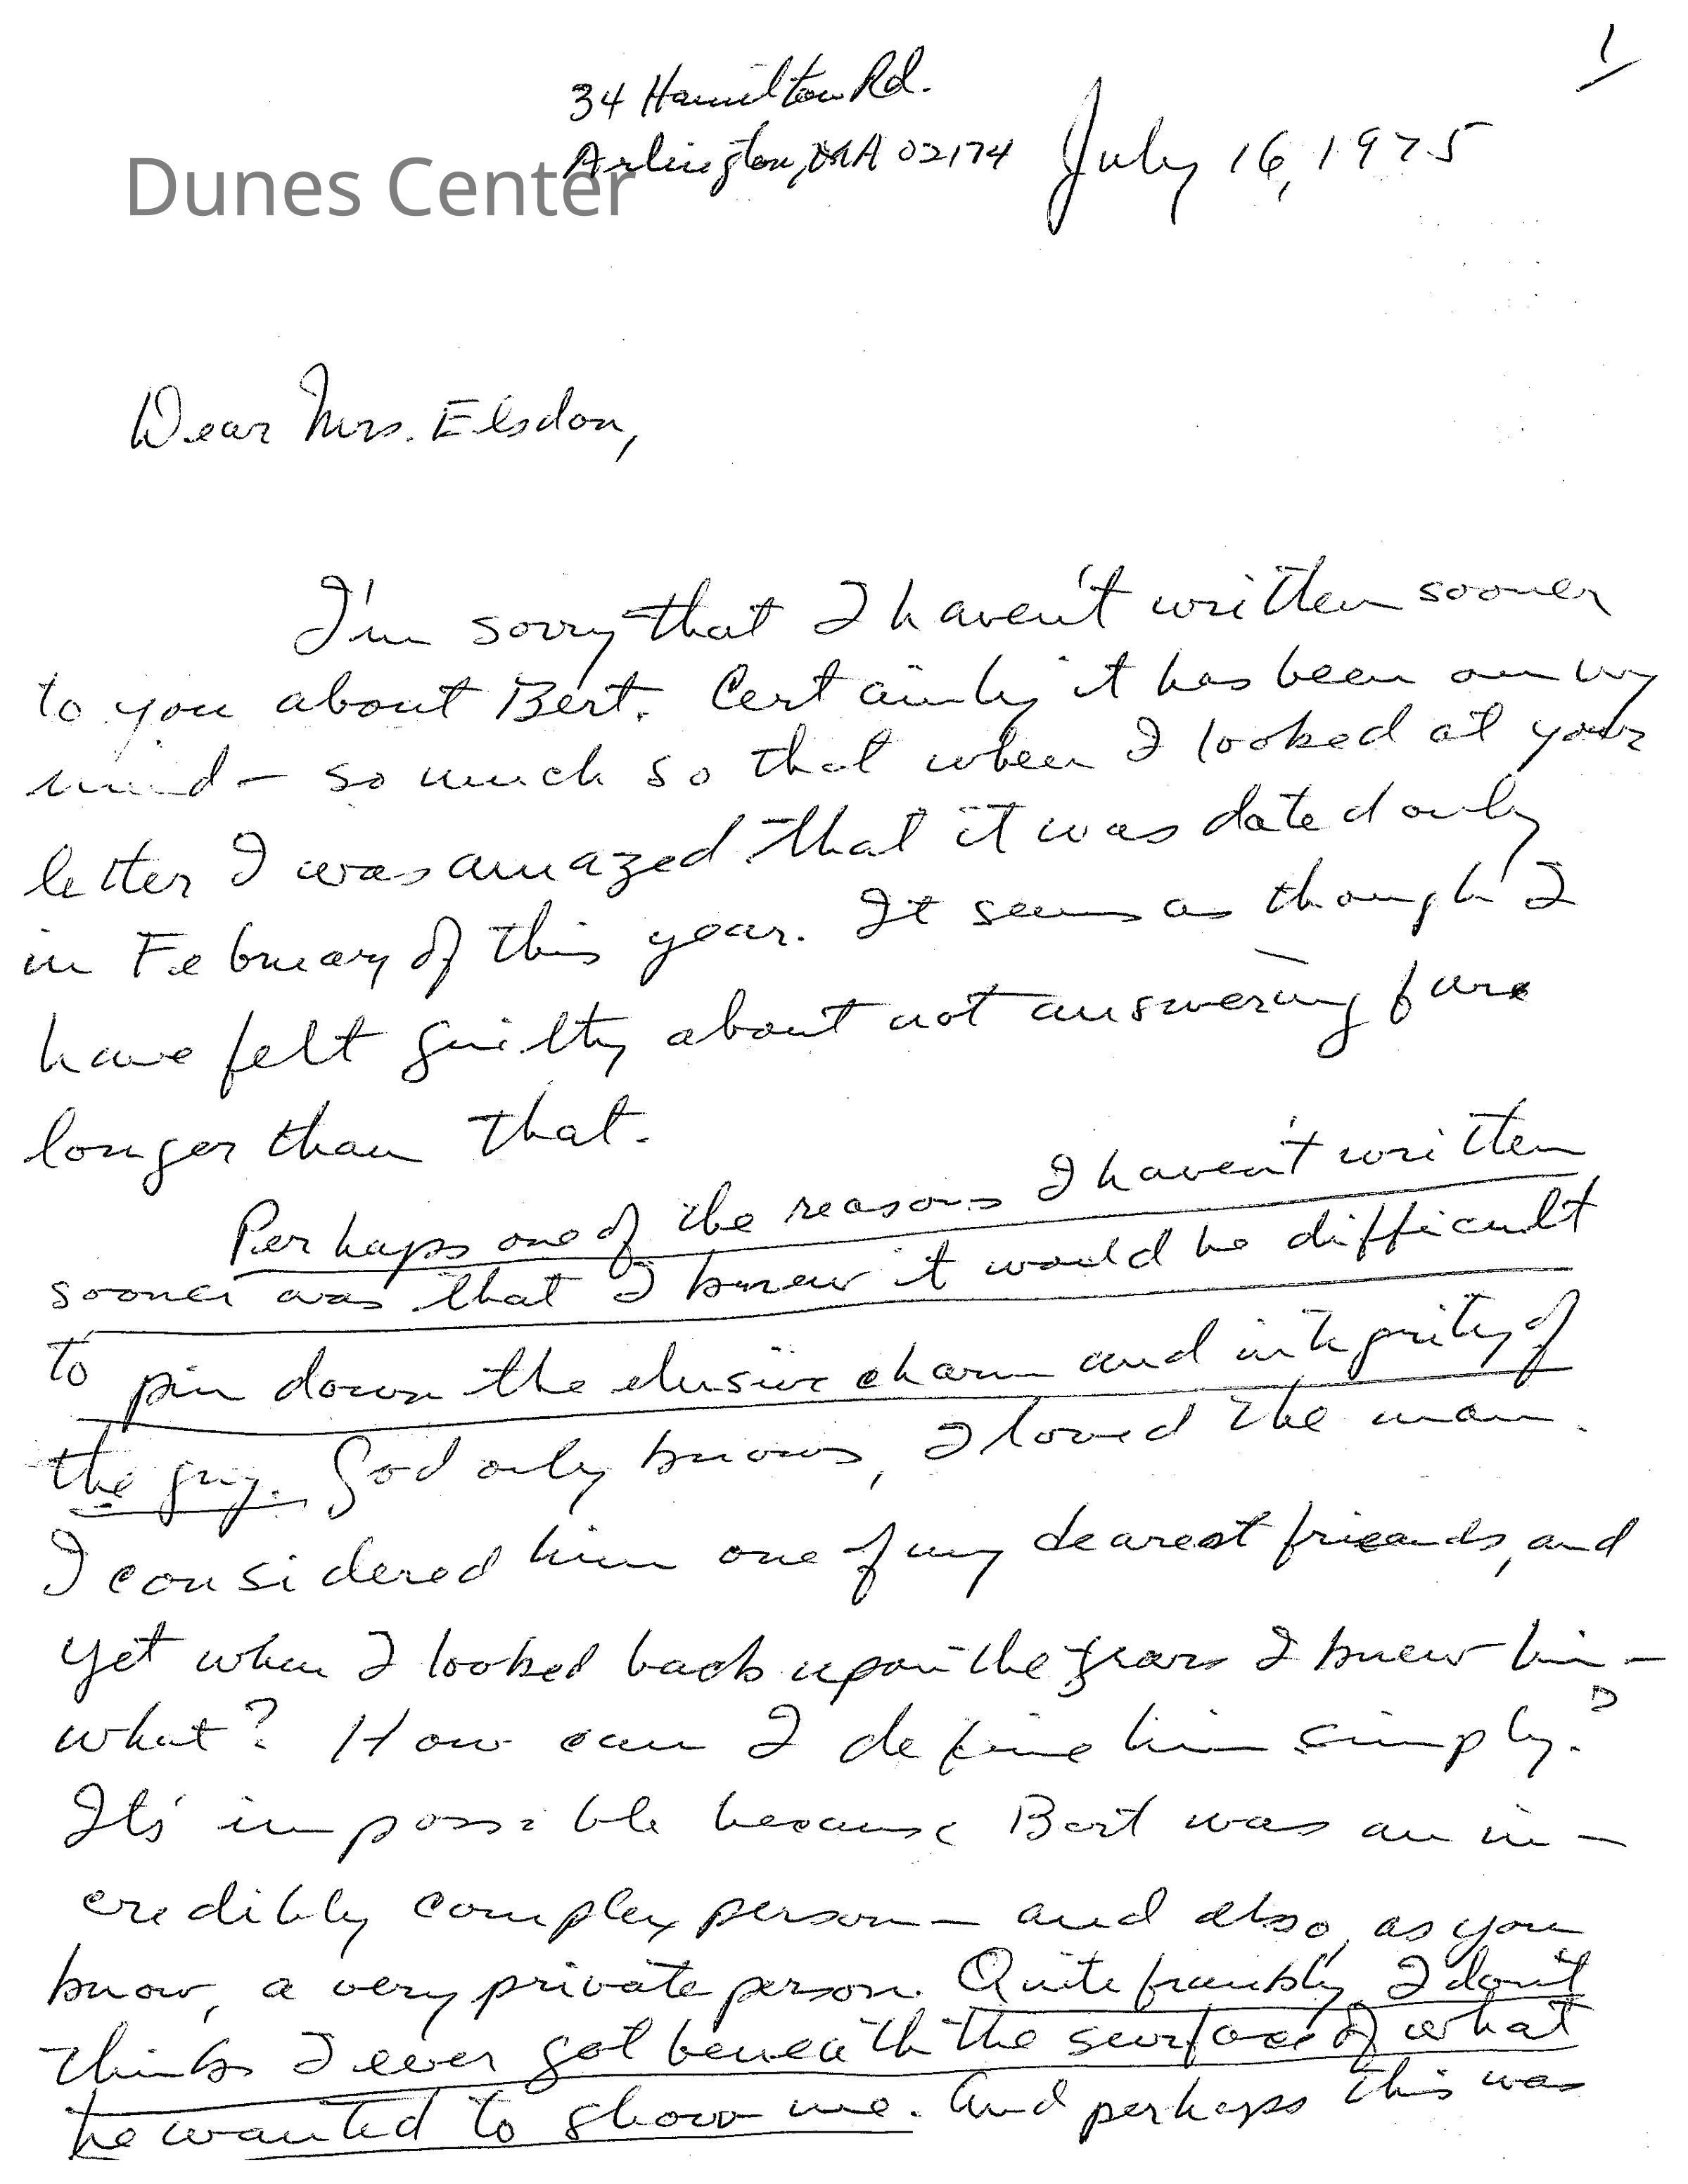 1
34 Hamilton Rd.
Arlington, MA 02174 July 16, 1975
Dunes Center
Dear Mrs. Elsdon,
I'm sorry that I haven't written sooner
to you about Bert. Certainly it has been on my
mind - so much so that when I looked at your
letter I was amazed that it was dated only
in February of this year. It seems as though I
have felt guilty about not answering for
longer than that.
Perhaps one of the reasons I haven't written
sooner was that I knew it would be difficult
to pin down the elusive charm and integrity of
the guy. God only knows, I loved the man.
I considered him one of my dearest friends, and
yet when I looked back upon the years I knew him -
what? How can I define him simply?
It's impossible because Bert was an in-
credibly complex person - and also, as you
know, a very private person. Quite frankly, I don't
think I ever got beneath the surface of what
he wanted to show me. And perhaps this was